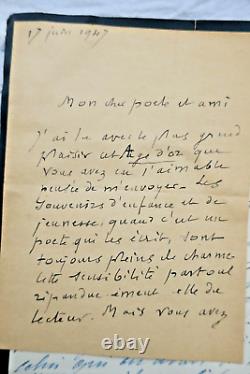 17 juin 1947
Mon cher poete et ami
J'ai lu avec le plus grand
plaisir cet Age d'or que
vous avez eu l'aimable
pensée de m'envoyer. Les
souvenirs d'enfance et de
jeunesse, quand c'est un
poete qui les écrit, sont
toujours pleins de charme
cette sensibilité partout
répandue émeut elle du
lecteur. Mais vous avez